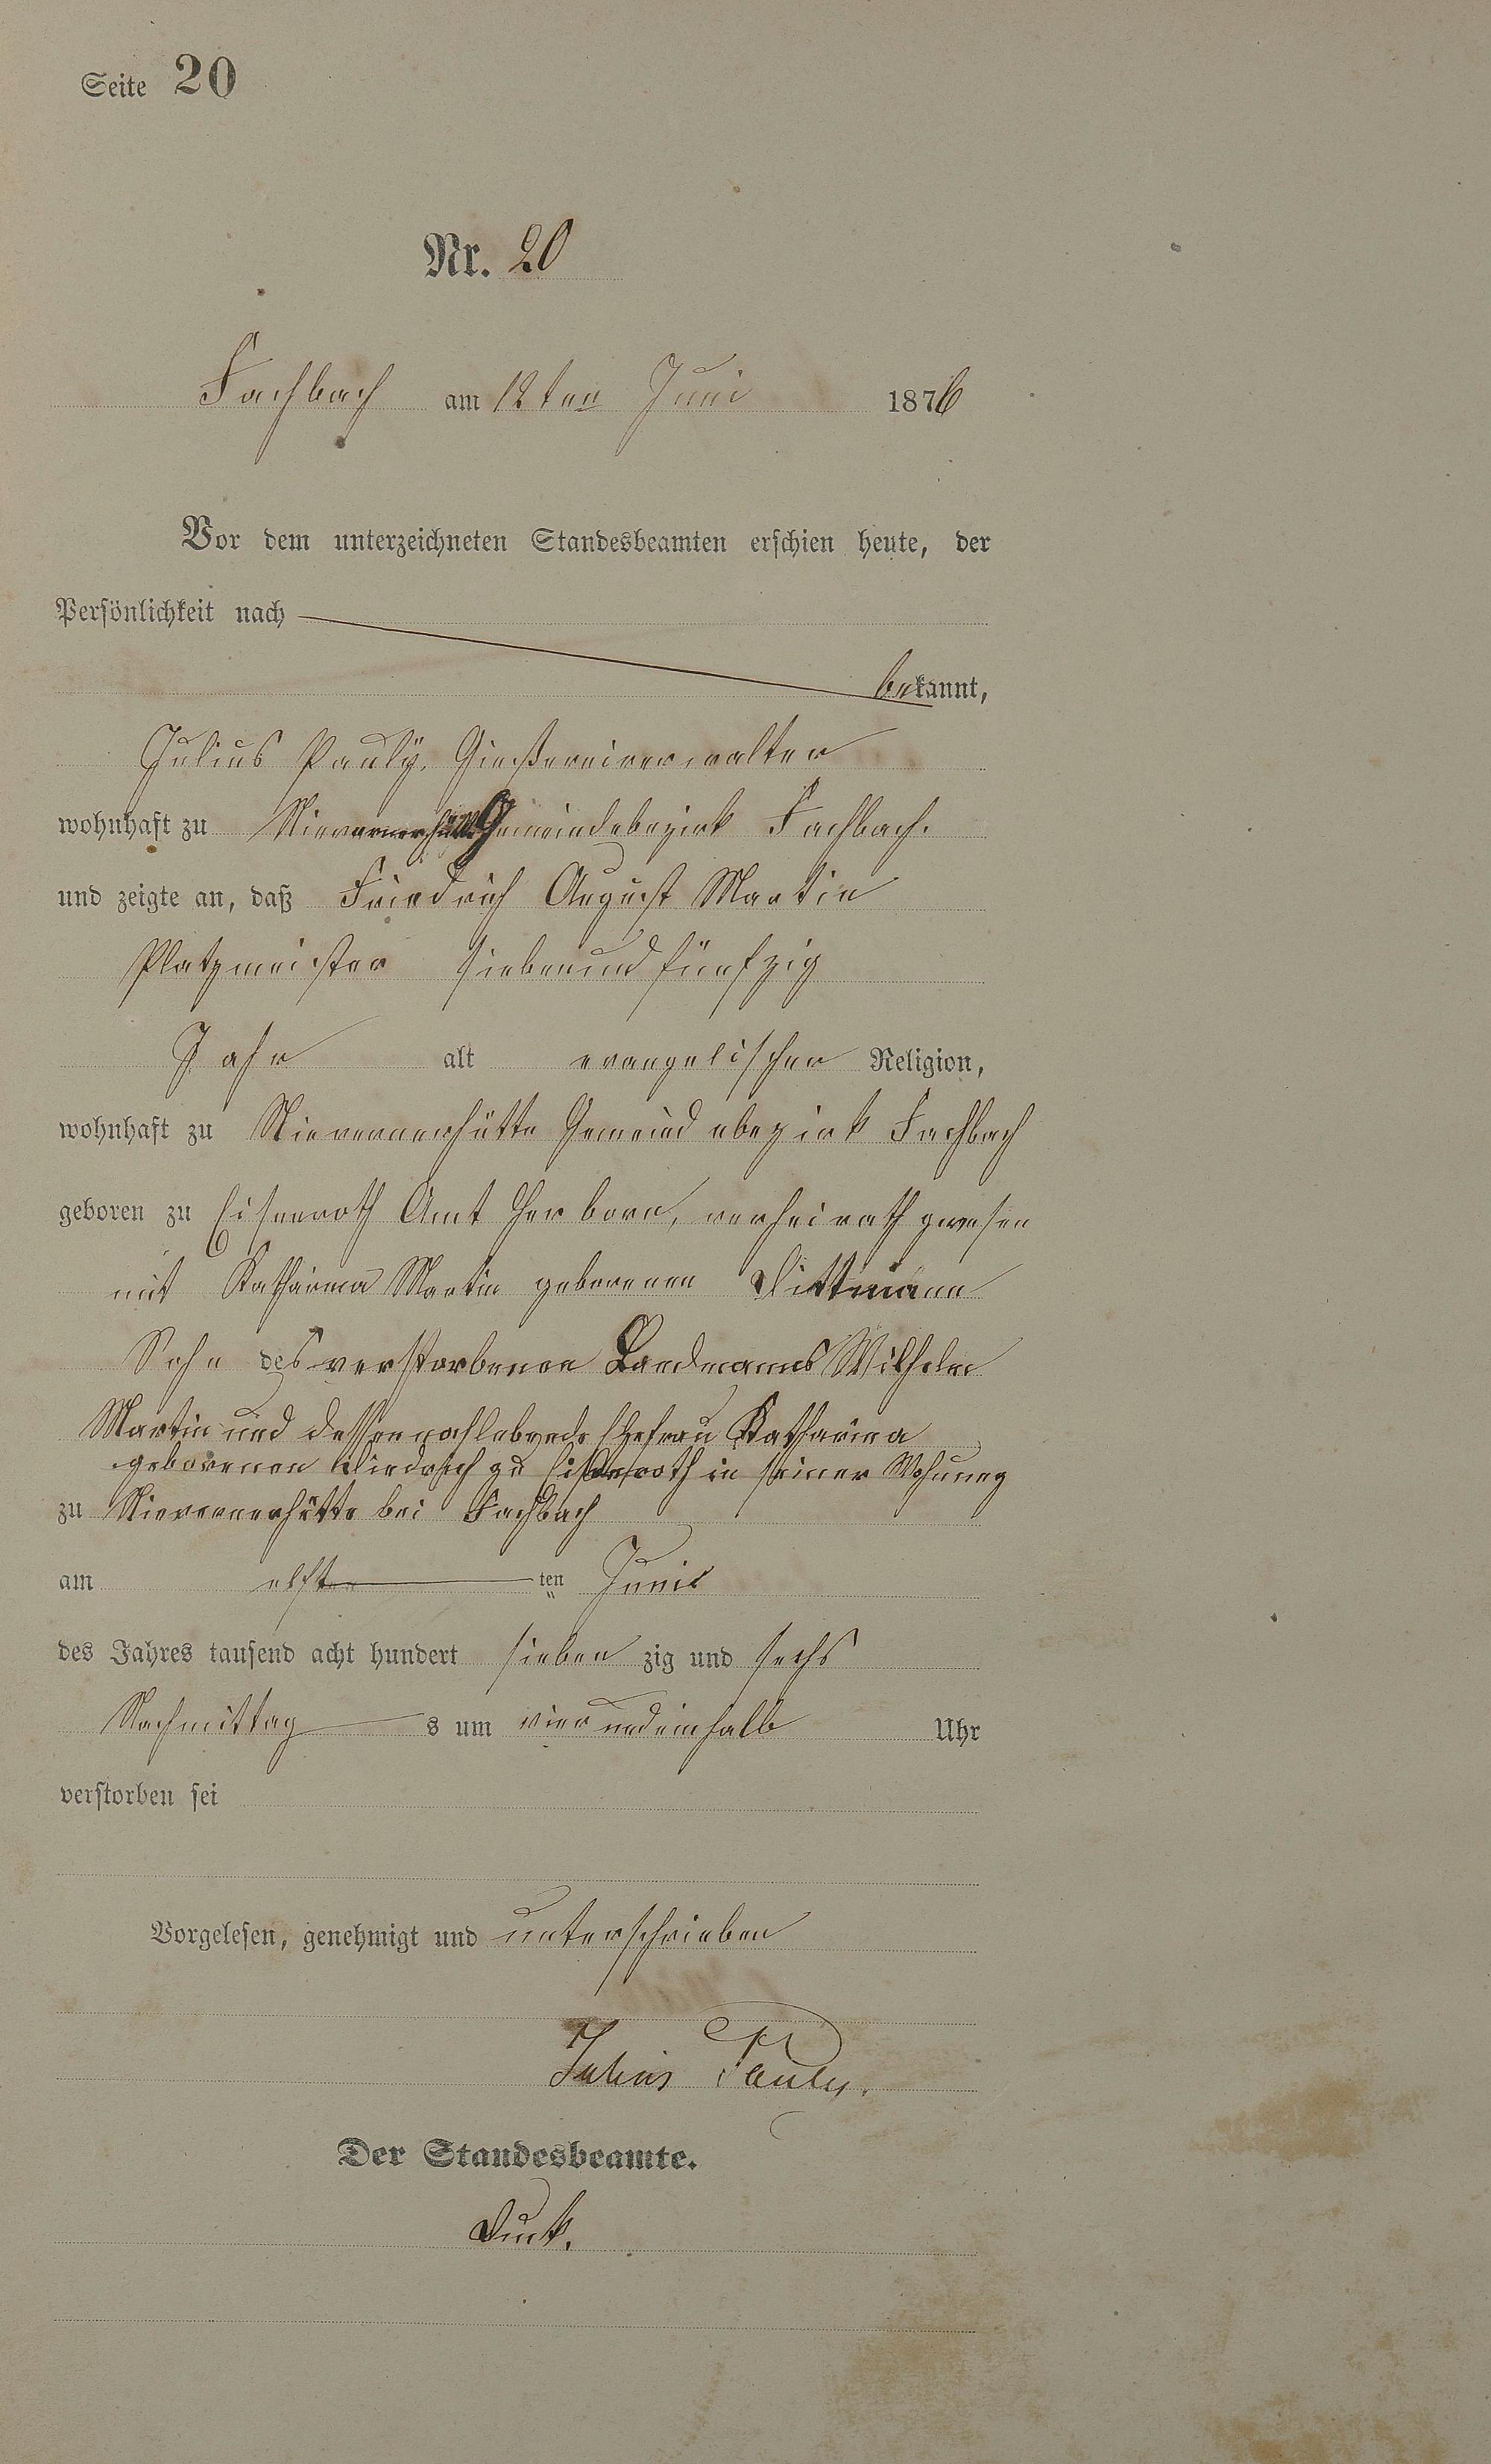 Seite 20
Nr. 20
Fachbach am 12ten Juni 1876
Vor dem unterzeichneten Standesbeamten erschien heute, der
Persönlichkeit nach
bekannt,
Julius Pauly, Gießereiverwalter
wohnhaft zu Nievernerhütte Gemeindebezirk Fachbach.
und zeigte an, daß Friedrich August Martin
Platzmeister siebenundfünfzig
Jahr alt evangelischer Religion,
wohnhaft zu Nievernerhütte Gemeindebezirk Fachbach
geboren zu Eisenroth Amt Herborn, verheirath gewesen
mit Katharina Martin geborenen Dittmann
Sohn des verstorbenen Landmanns Wilhelm
Martin und dessen nochlebende Ehefrau Katharina
geborenen zu Eisenroth in seiner Wohnung
zu Nievernerhütte bei Fachbach
am elften ten Juni
des Jahres tausend acht hundert sieben zig und sechs
Nachmittag s um vier undeinhalb Uhr
verstorben sei
Vorgelesen, genehmigt und unterschrieben
Julius Pauly.
Der Standesbeamte.